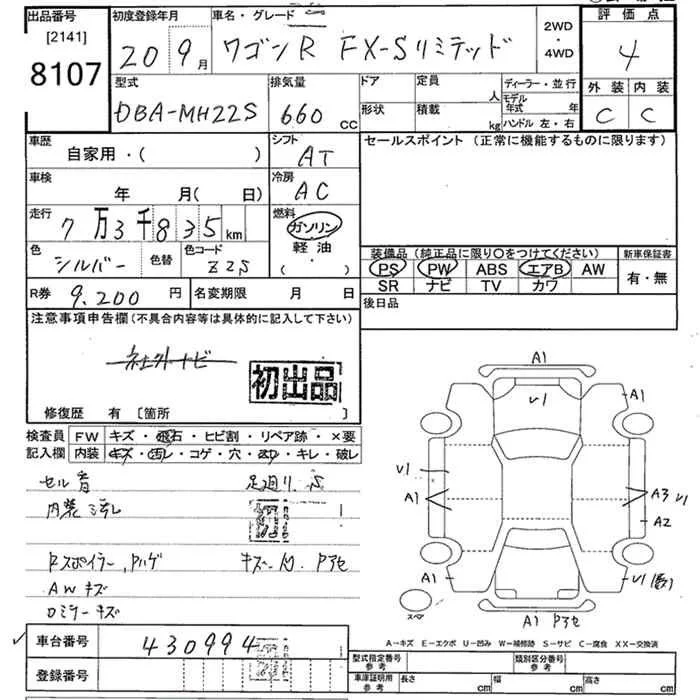 出品番号 初度登録年月 車名・グレード 評価点
[2141]
8107
20 9月 ワゴンR FX-Sリミテッド 2WD・4WD 4
型式 排気量 ドア 定員 人 ディーラー・並行 外装 内装
DBA-MH22S 660 cc 形状 積載 kg モデル年式 年 C C
ハンドル 左・右
車歴 シフト セールスポイント (正常に機能するものに限ります)
自家用・( ) AT
車検 冷房
年 月(日) AC
走行 燃料
7万3千835km ガソリン
軽油
( ・ )
色 シルバー 色替 色コード Z2S
装備品 (純正品に限り〇をつけてください) 新車保証書
PS PW ABS エアB AW 有・無
SR ナビ TV カワ
R券 9,200円 名変期限 月 日 後日品
注意事項申告欄(不具合内容等は具体的に記入して下さい)
社外ナビ
初出品
修復歴 有 [箇所 ]
検査員 FW キズ・飛石・ヒビ割・リペア跡・×要
記入欄 内装 キズ・汚レ・コゲ・穴・スレ・キレ・破レ
セル音 足廻り.S
内装汚れ 初
Rスポイラー, Pハゲ キズ・凹. Pアセ
AWキズ
ロミラーキズ
A1
U1
A1
U1
A1
A3 U1
A2
A1
U1
スペア
A1 Pアセ
A-キズ E-エクボ U-凹み W-補修跡 S-サビ C-腐食 XX-交換済
車台番号 430994
登録番号
型式指定番号参考 類別区分番号参考
車庫証明用参考 長さ cm 幅 cm 高さ cm